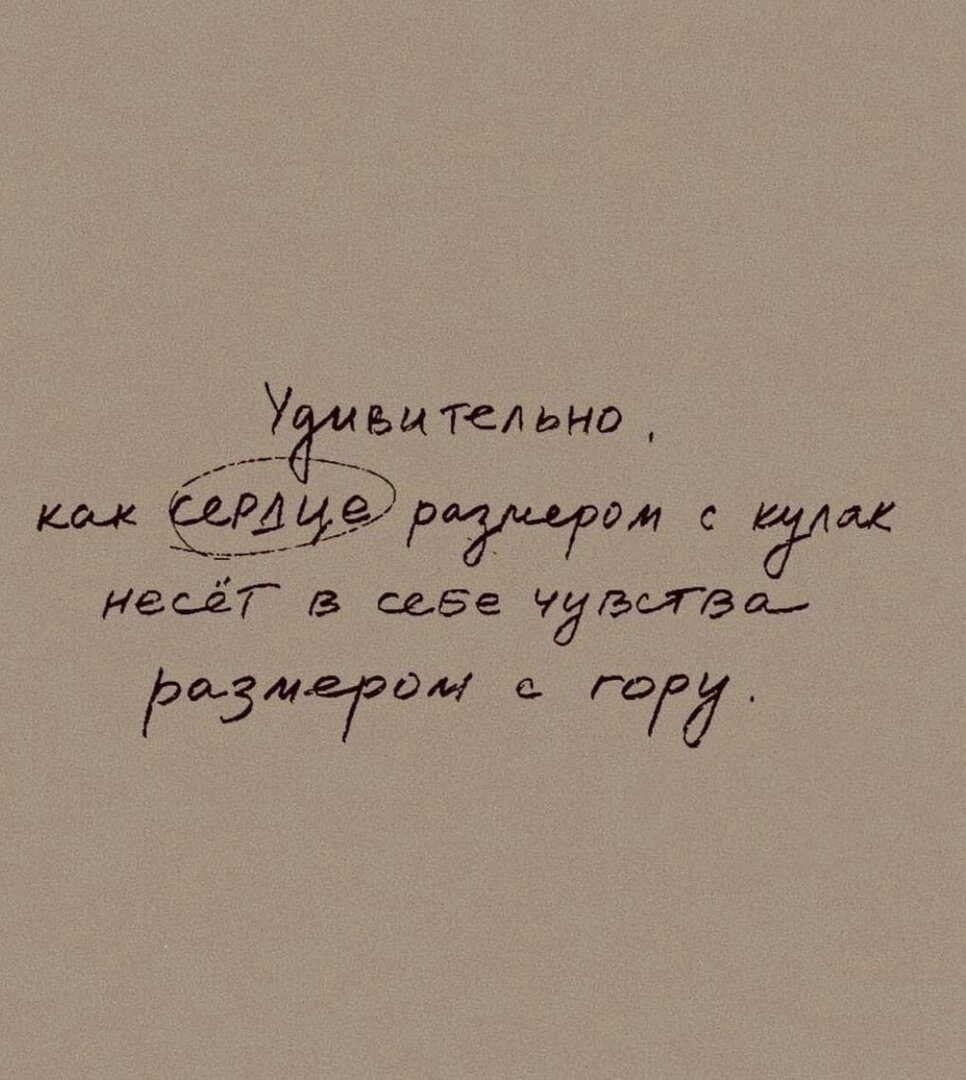 Удивительно,
как сердце размером с кулак
несёт в себе чувства
размером с гору.